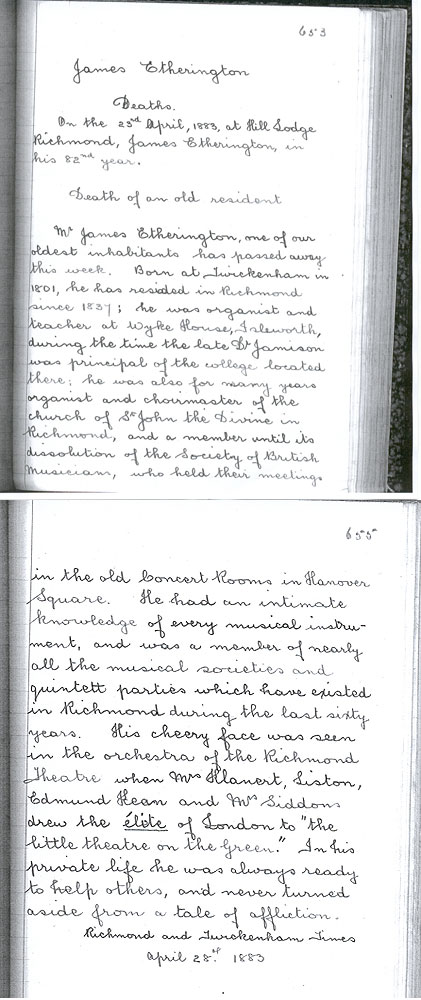 653
James Etherington
Deaths.
On the 23rd April, 1883, at Hill Lodge
Richmond, James Etherington, in
his 82nd year.
Death of an old resident
Mr James Etherington, one of our
oldest inhabitants has passed away
this week. Born at Twickenham in
1801, he has resided in Richmond
since 1837; he was organist and
teacher at Wyke House, Isleworth,
during the time the late Dr Jamison
was principal of the college located
there; he was also for many years
organist and choirmaster of the
church of St John the Divine in
Richmond, and a member until its
dissolution of the Society of British
Musicians, who held their meetings
655
in the old Concert Rooms in Hanover
Square. He had an intimate
knowledge of every musical instru-
ment, and was a member of nearly
all the musical societies and
quintett parties which have existed
in Richmond during the last sixty
years. His cheery face was seen
in the orchestra of the Richmond
Theatre when Mrs Klanert, Liston,
Edmund Kean and Mrs Siddons
drew the élite of London to "the
little theatre on the Green." In his
private life he was always ready
to help others, and never turned
aside from a tale of affliction.
Richmond and Twickenham Times
April 28th 1883